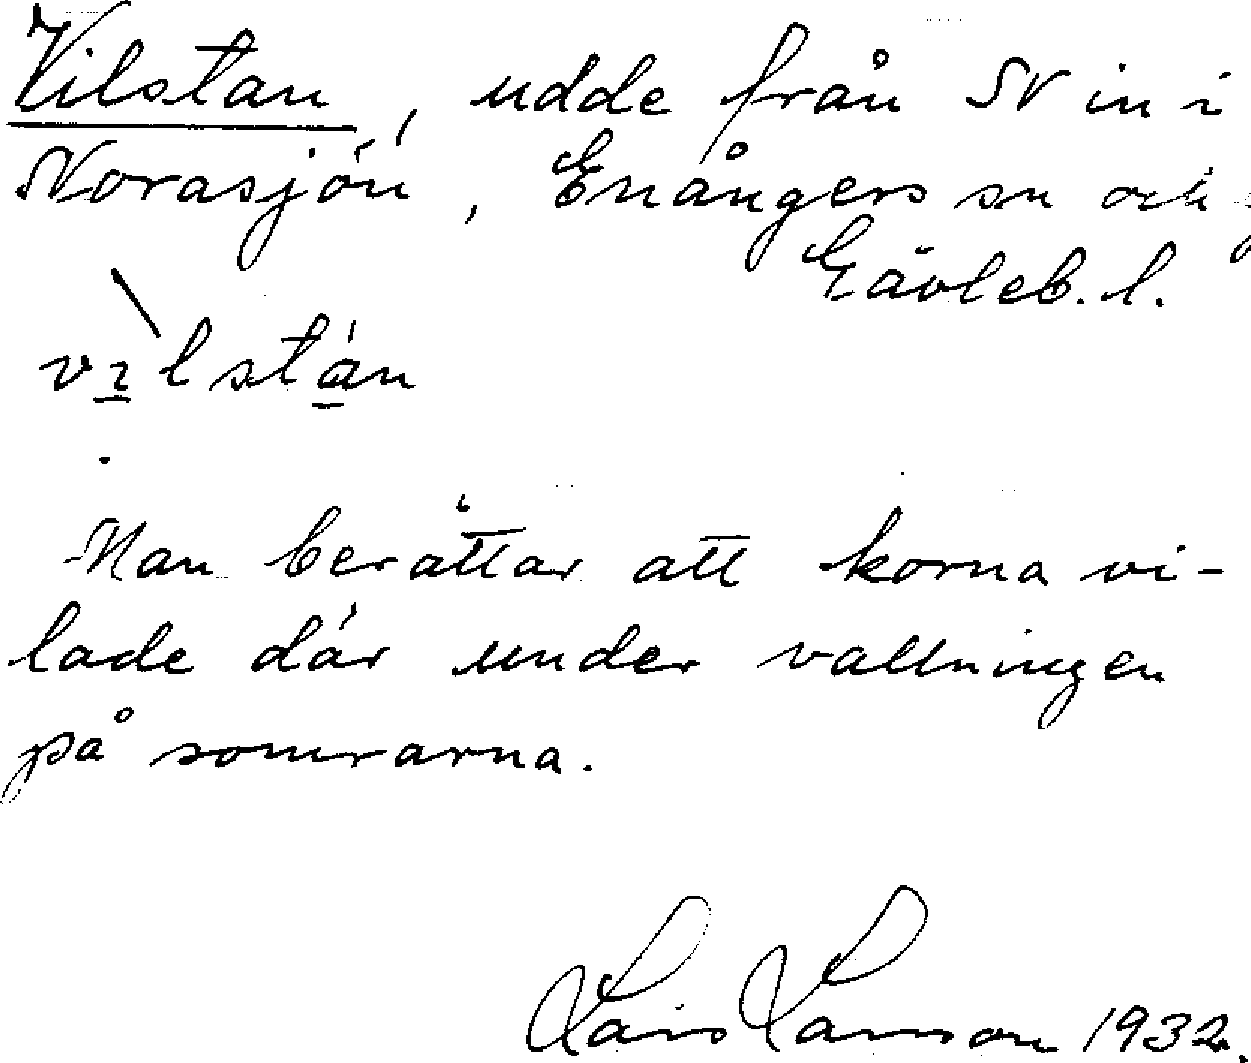 Vilstan, udde från N in i
Norasjön, Enångers sn och
Gävleb. l.
vìlstán
Man berättar att korna vi-
lade där under vallningen
på somrarna.
Lars Larsson 1932.